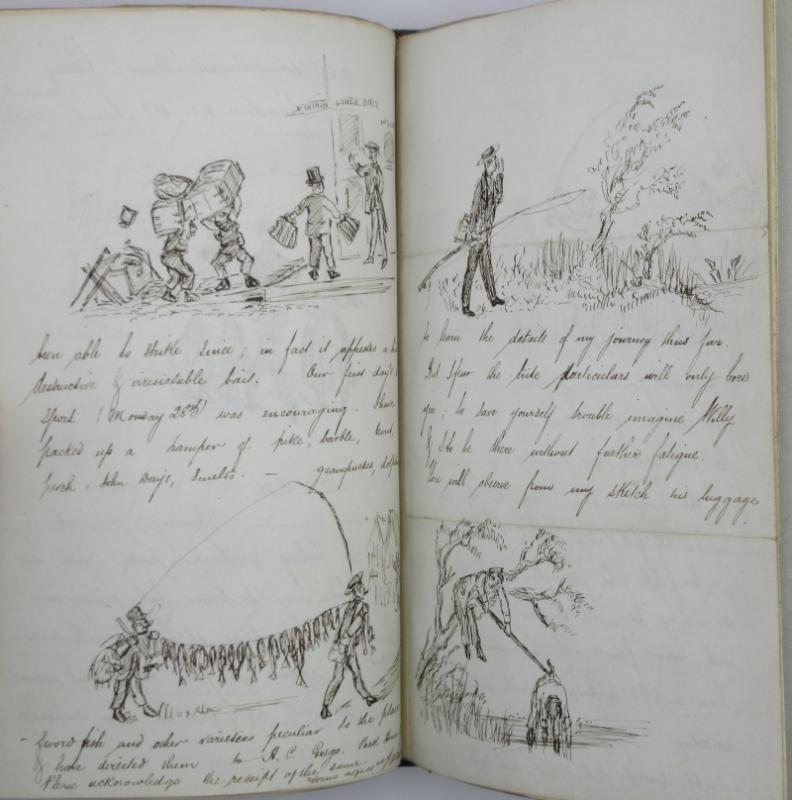 been able to strike since ; in fact it appears a
destructive & irresistable bait. Our first day's
Sport (Monday 28th) was encouraging. I have
packed up a hamper of pike, barble, trout,
perch, John Dorys, Smelts. — grampusses,
Sword fish and other varieties peculiar to the place
& have directed them to H. C. Park
Please acknowledge the receipt of the same.
to learn the details of my journey thus far.
But I fear the trite particulars will only bore
you ; to save yourself trouble imagine Willy
& I to be there without further fatigue.
You will observe from my sketch his luggage